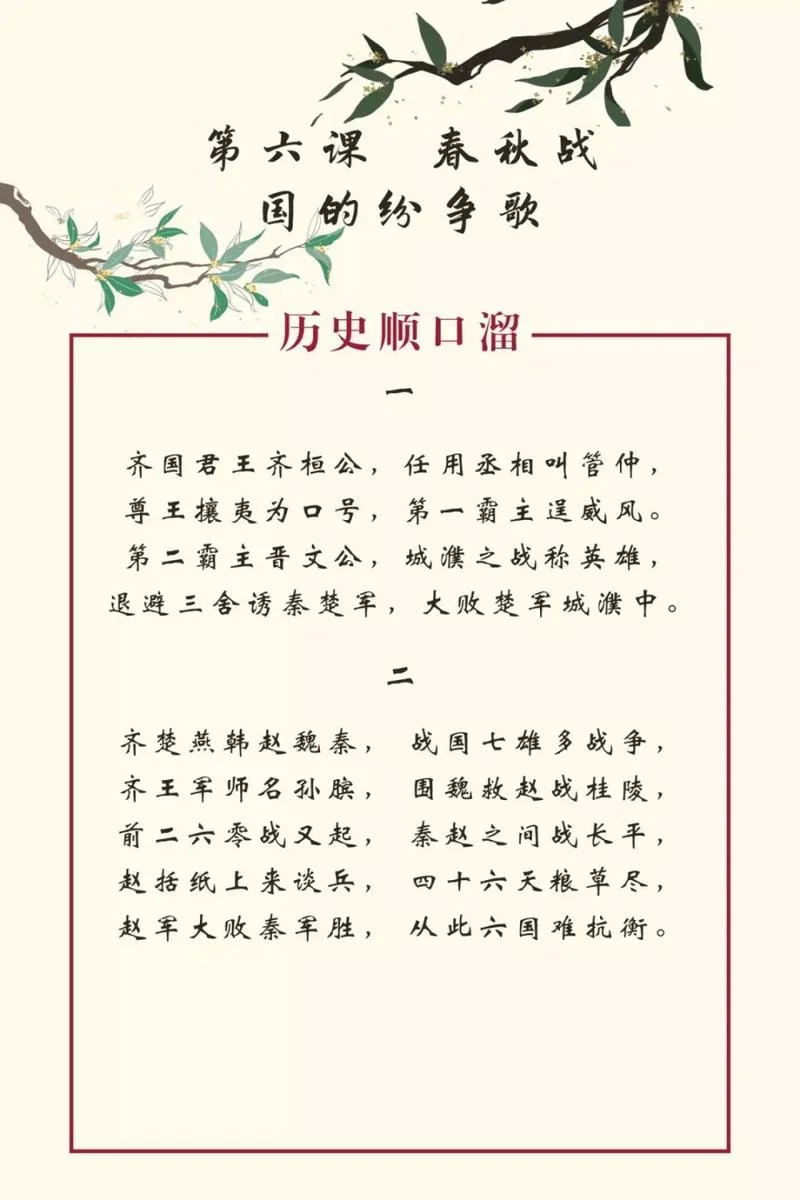 第六课 春秋战
国的纷争歌
历史顺口溜
一
齐国君王齐桓公，任用丞相叫管仲，
尊王攘夷为口号，第一霸主逞威风。
第二霸主晋文公，城濮之战称英雄，
退避三舍诱秦楚军，大败楚军城濮中。
二
齐楚燕韩赵魏秦， 战国七雄多战争，
齐王军师名孙膑， 围魏救赵战桂陵，
前二六零战又起， 秦赵之间战长平，
赵括纸上来谈兵， 四十六天粮草尽，
赵军大败秦军胜， 从此六国难抗衡。